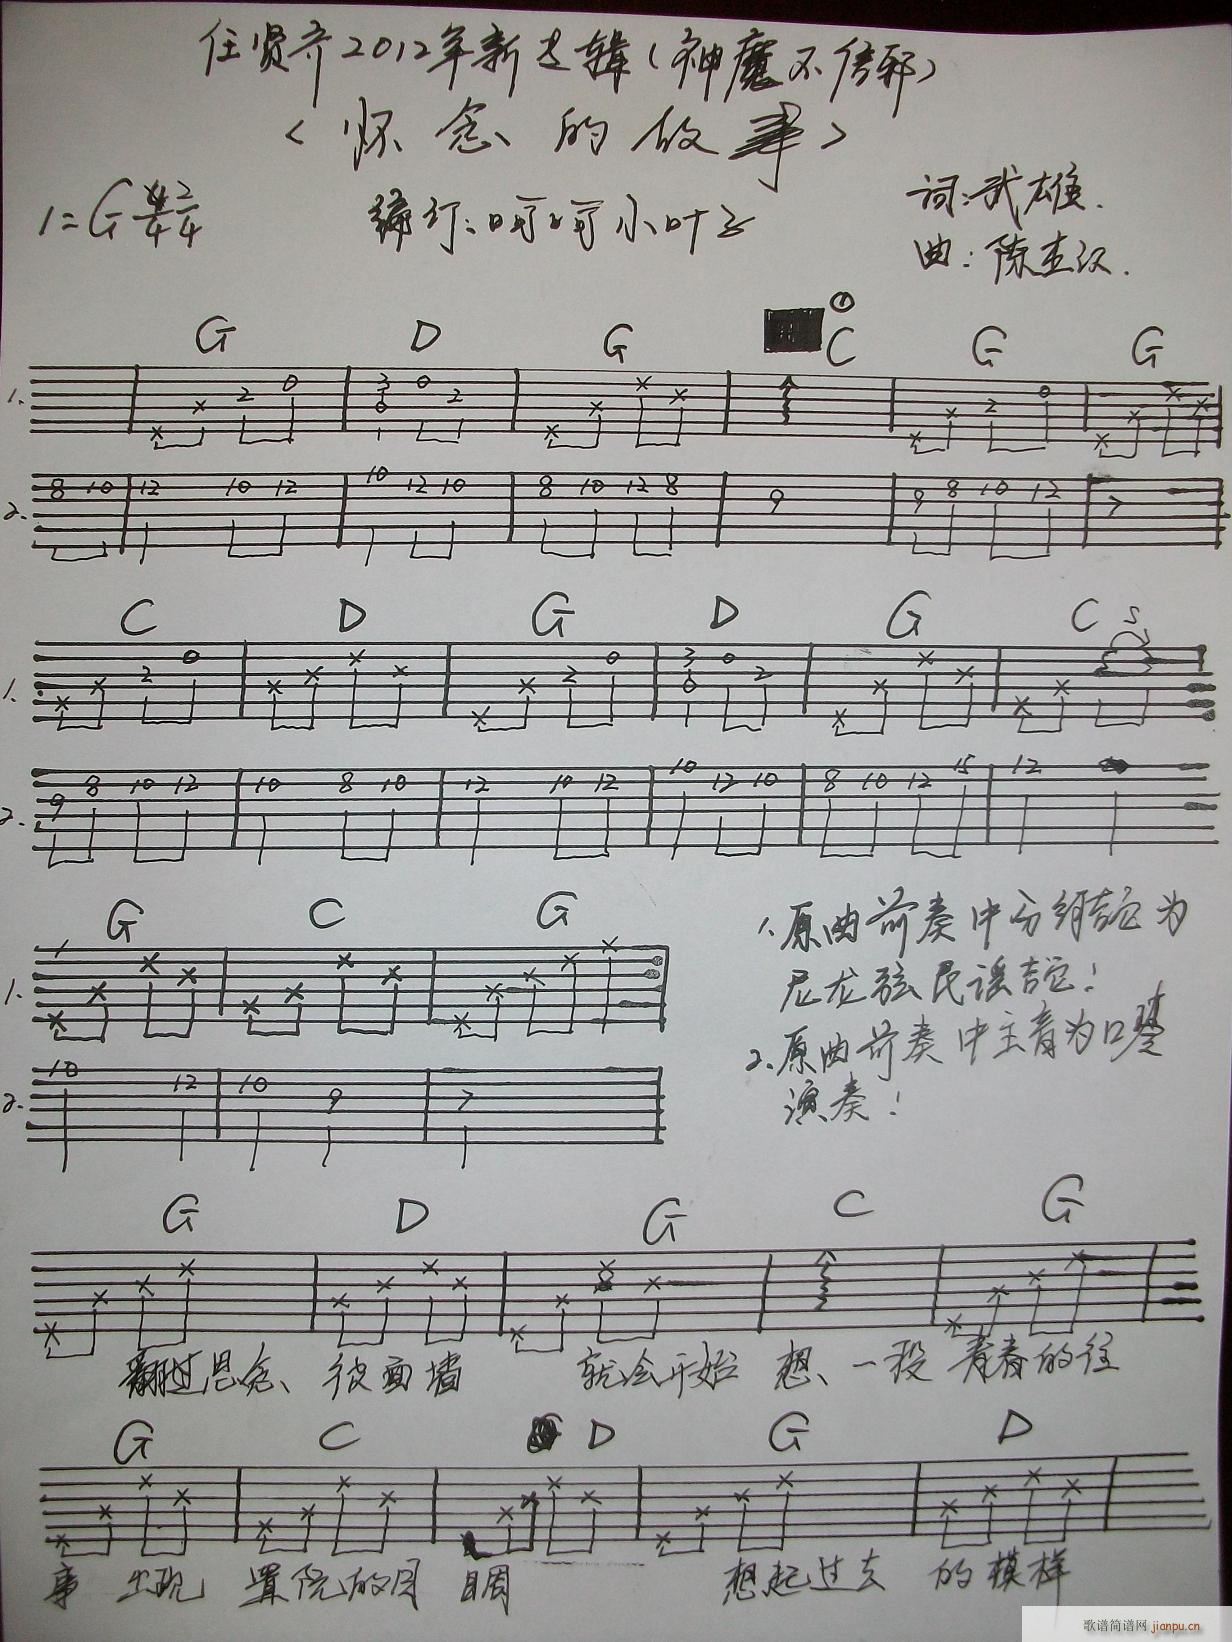 任贤齐2012年新专辑(神魔不信邪)
<怀念的故事>
1=G 2/4
编订:呵呵小叶子
词:武雄.
曲:陈杰汉.
G D G ① C G G
1. 2 0 3 0 0 2 2 0
2. 8 10 12 10 12 10 12 10 8 10 12 8 9 9 8 10 12 7
C D G D G C S
1. 2 0 2 0 3 0 0 2
2. 9 8 10 12 10 8 10 12 10 12 10 12 10 8 10 12 15 12
G C G
1.
2. 10 12 10 9 7
1.原曲前奏中分解吉它为
尼龙弦民谣吉它!
2.原曲前奏中主音为口琴
演奏!
G D G C G
翻过思念 彼面墙 就会开始 想 一段 青春的往
G C D G D
事 出现 置阮的目 睭 想起过去 的模样
歌谱简谱网 jianpu.cn